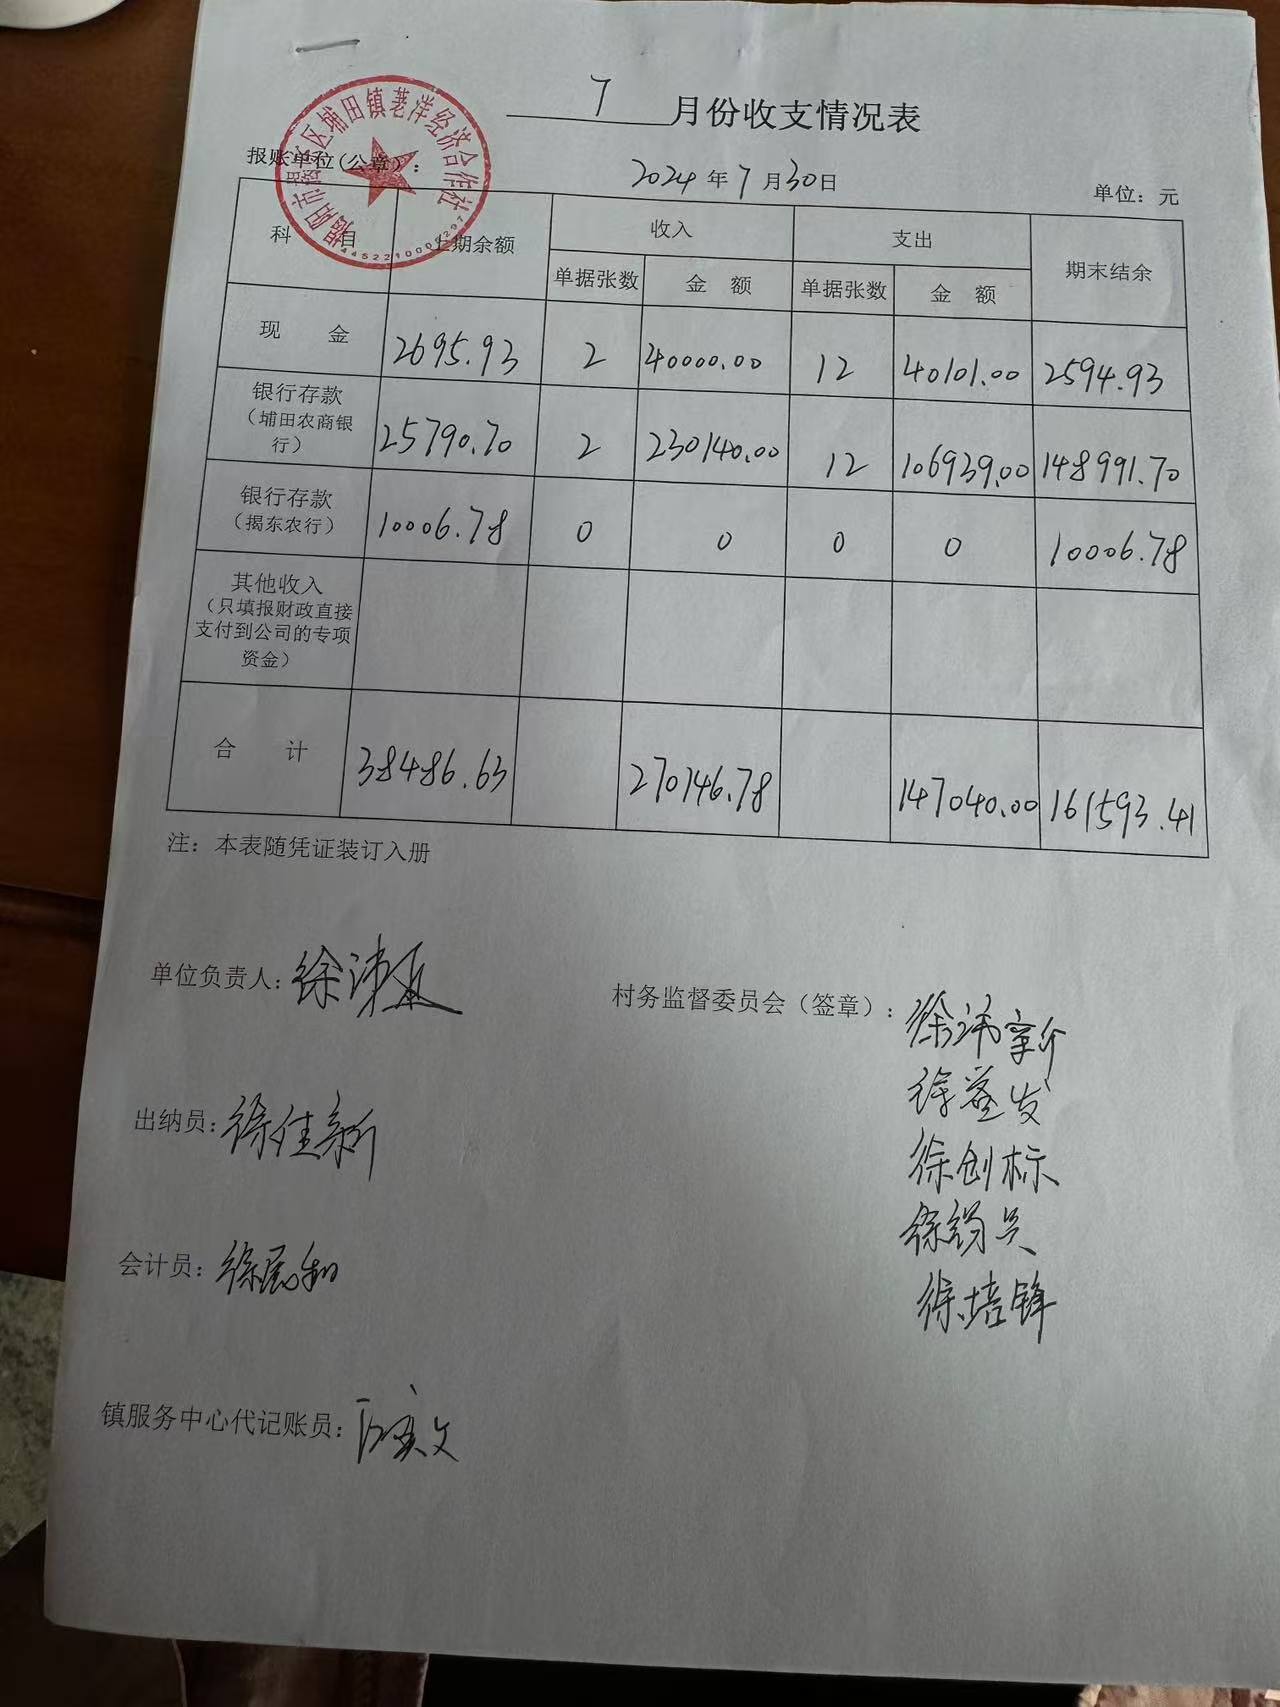 7 月份收支情况表
揭阳市揭东区埔田镇荖洋经济合作社
报账单位(公章):
2024年7月30日
单位：元
科 目 上期余额 收入 支出 期末结余
单据张数 金 额 单据张数 金 额
现 金 2695.93 2 40000.00 12 40101.00 2594.93
银行存款
（埔田农商银
行） 25790.70 2 230140.00 12 106939.00 148991.70
银行存款
（揭东农行） 10006.78 0 0 0 0 10006.78
其他收入
（只填报财政直接
支付到公司的专项
资金）
合 计 38486.63 270146.78 147040.00 161593.41
注：本表随凭证装订入册
单位负责人：徐
村务监督委员会（签章）：
徐
徐 发
徐创标
徐
徐培锋
出纳员：徐佳新
会计员：徐
镇服务中心代记账员： 文